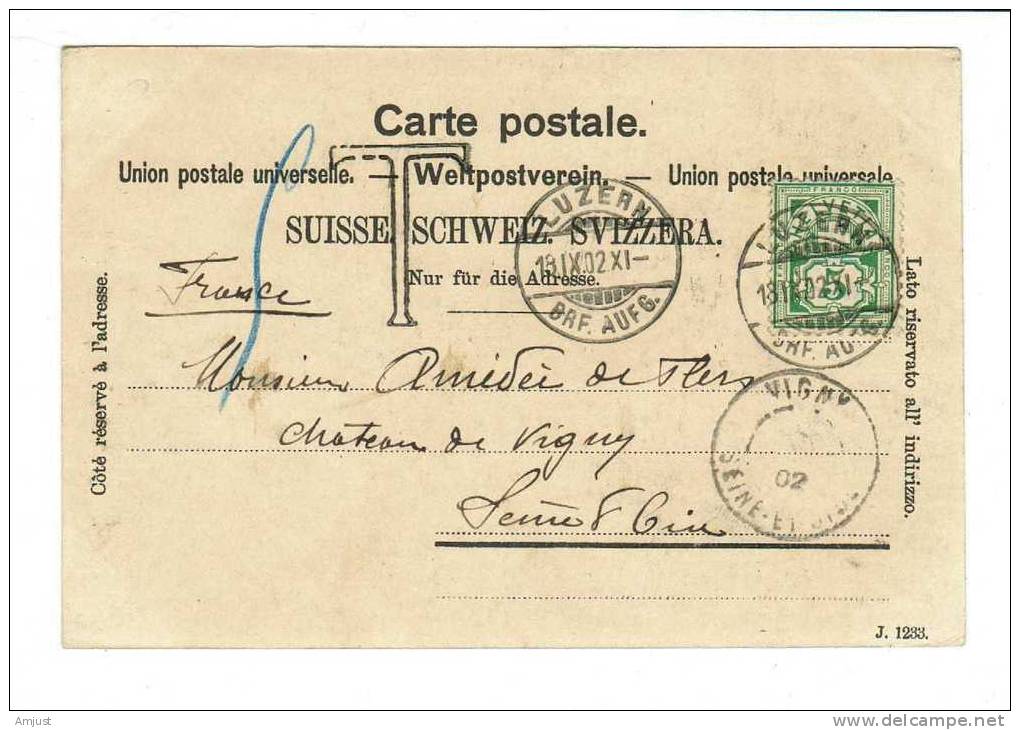 Carte postale.
Union postale universelle. — Weltpostverein. — Union postale universale
SUISSE. SCHWEIZ. SVIZZERA.
Nur für die Adresse.
T
LUZERN
18.IX.02.XI–
BRF. AUFG.
FRANCO
5
LUZERN
18.IX.02.XI–
BRF. AUFG.
Côté réservé à l'adresse.
Lato riservato all' indirizzo.
France
Monsieur Amédée de Flers
Chateau de Vigny
Seine & Oise
VIGNY
02
SEINE-ET-OISE
J. 1233.
Amjust
www.delcampe.net